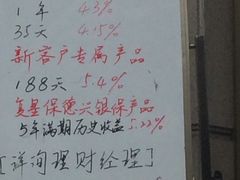 1年 4.3%
35天 4.15%
新客户专属产品
188天 5.4%
复星保德兴银保产品
5年满期历史收益 5.22%
[详询理财经理]